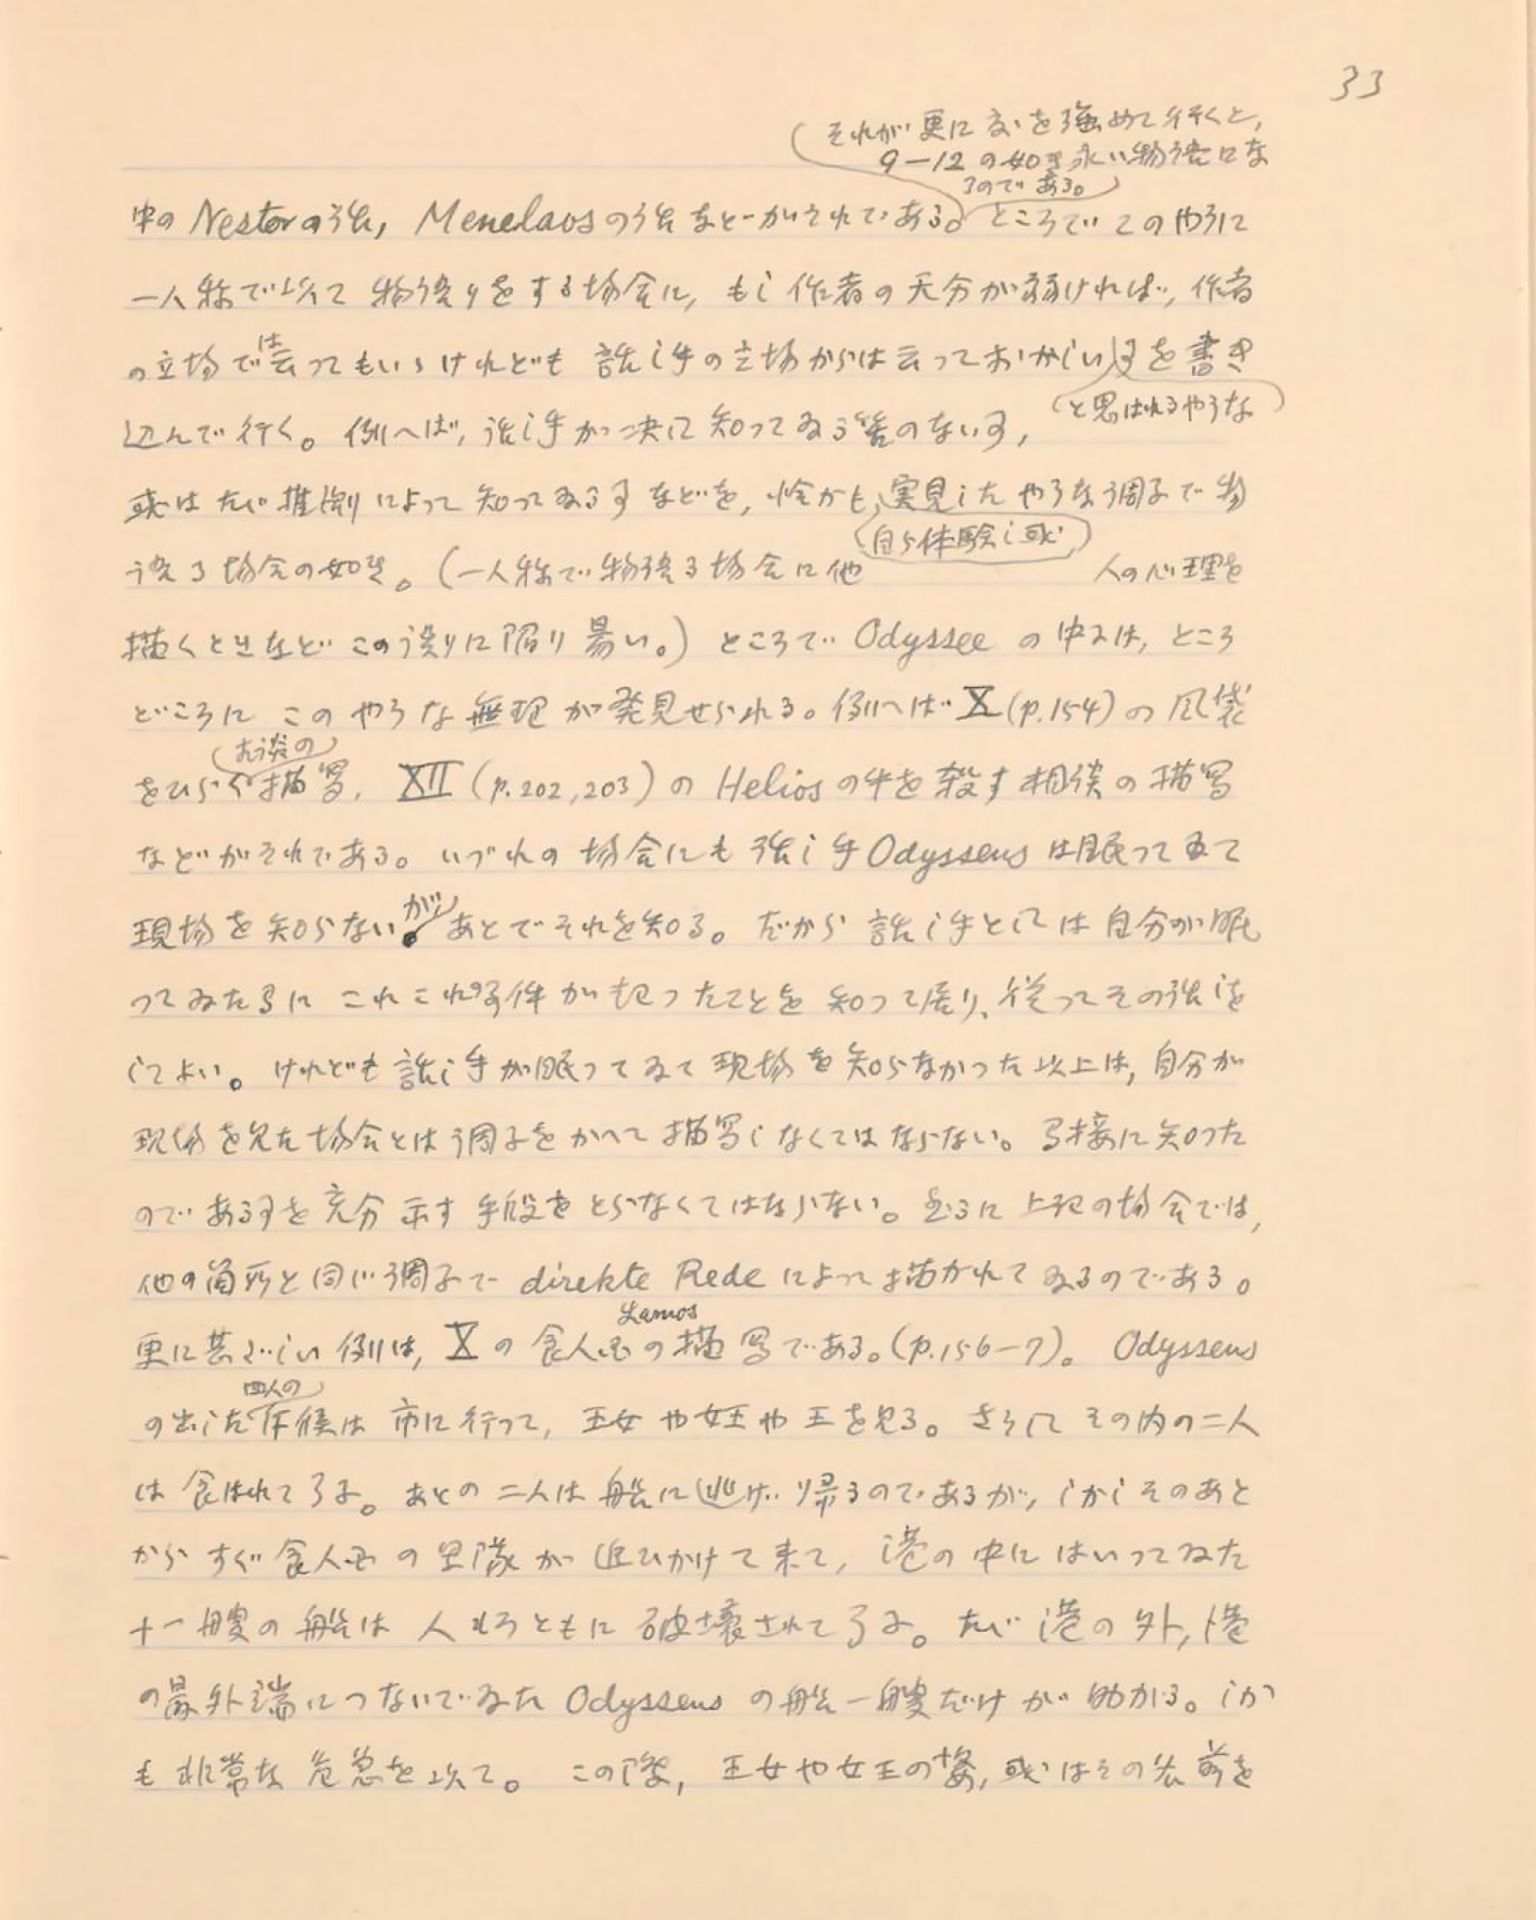 33
それが更に度を強めて行くと,
9—12の如き永い物語にな
るのである。
中のNestorの話, Menelaosの話などがそれである。ところでこのやうに
一人称で以て物語りをする場合に, もし作者の天分が弱ければ, 作者
の立場では云ってもいゝけれども話し手の立場からは云っておかしい
と思はれるやうな
事を書き
込んで行く。例へば, 話し手が決して知ってゐる筈のない事,
或はたゞ推測によって知ってゐる事などを, 恰かも
自ら体験し或は
実見したやうな調子で物
語る場合の如き。(一人称で物語る場合に他人の心理を
描くときなどこの誤りに陥り易い。) ところでOdysseeの中には, ところ
どころにこのやうな無理が発見せられる。例へばX (p.154) の風袋
をひらく
相談の
描写, XII (p.202, 203) のHeliosの牛を殺す相談の描写
などがそれである。いづれの場合にも話し手Odysseusは眠ってゐて
現場を知らないが, あとでそれを知る。だから話し手としては自分が眠
ってゐた間にこれこれの事件が起ったことを知って居り、従ってその話しを
してよい。けれども話し手が眠ってゐて現場を知らなかった以上は, 自分が
現場を見た場合とは調子をかへて描写しなくてはならない。間接に知った
のである事を充分示す手段をとらなくてはならない。然るに上記の場合では,
他の箇所と同じ調子でdirekte Redeによって描かれてゐるのである。
更に甚だしい例は, Xの食人国
Lamos
の描写である。(p.156—7)。Odysseus
の出した
四人の
斥候は市に行って, 王女や女王や王を見る。さうしてその内の二人
は食はれて了ふ。あとの二人は船に逃げ帰るのであるが, しかしそのあと
からすぐ食人国の軍隊が追ひかけて来て, 港の中にはいってゐた
十一艘の船は人もろともに破壊されて了ふ。たゞ港の外, 港
の最外端につないでゐたOdysseusの船一艘だけが助かる。しか
も非常な危急を以て。この際, 王女や女王の姿, 或はその名前を